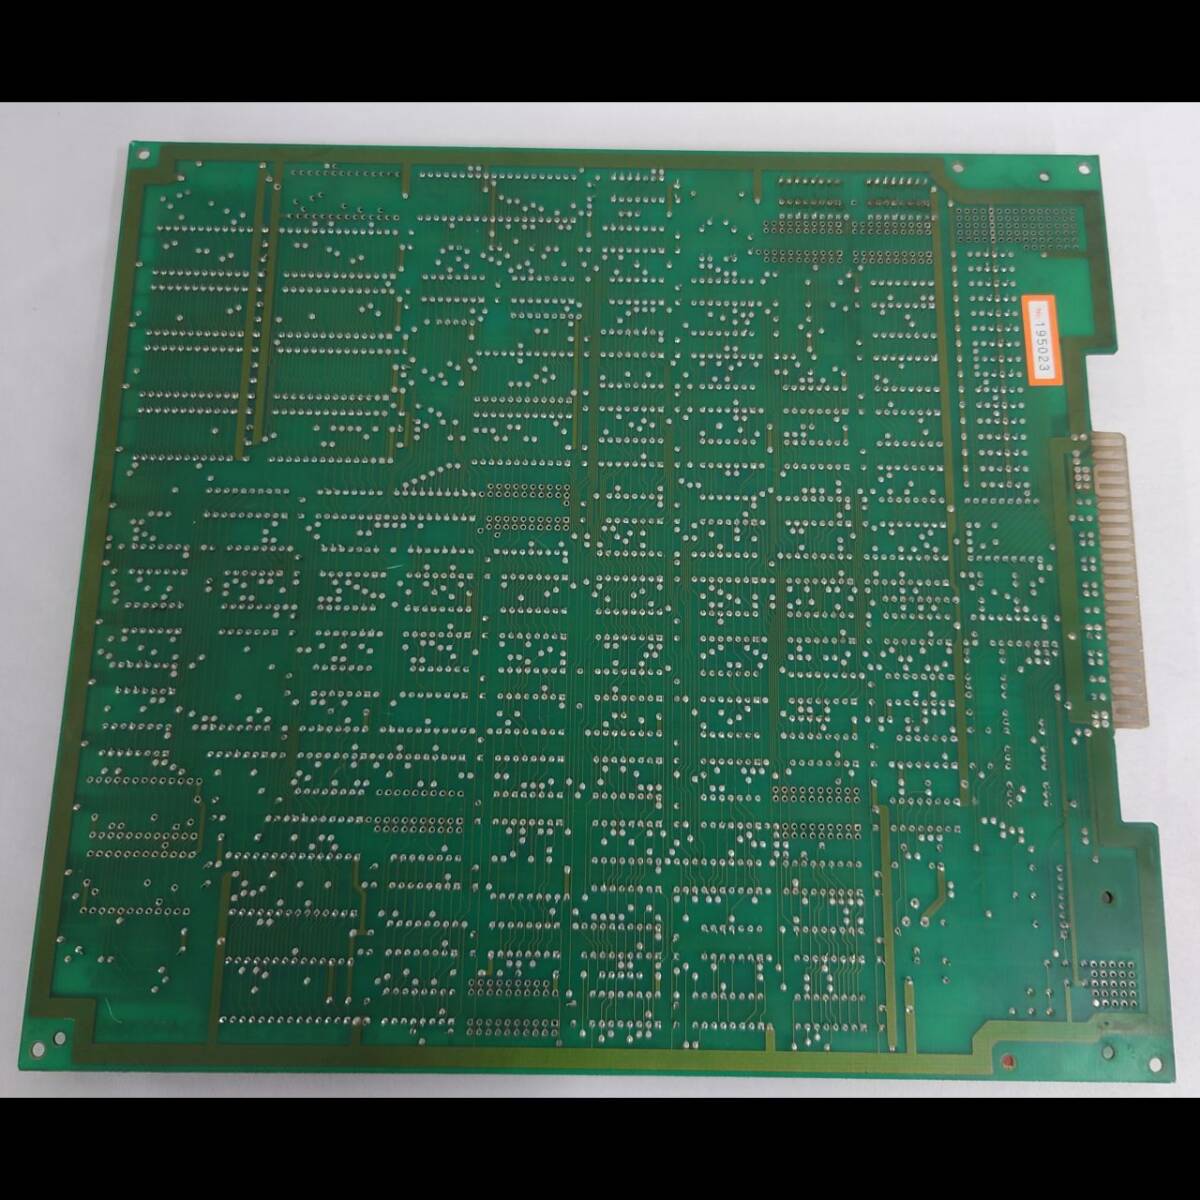 No. 195023